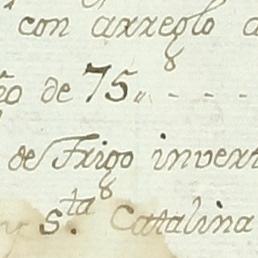 con arreglo a
ño de 75,, - - - -
de Trigo invert
y S.ta Catalina